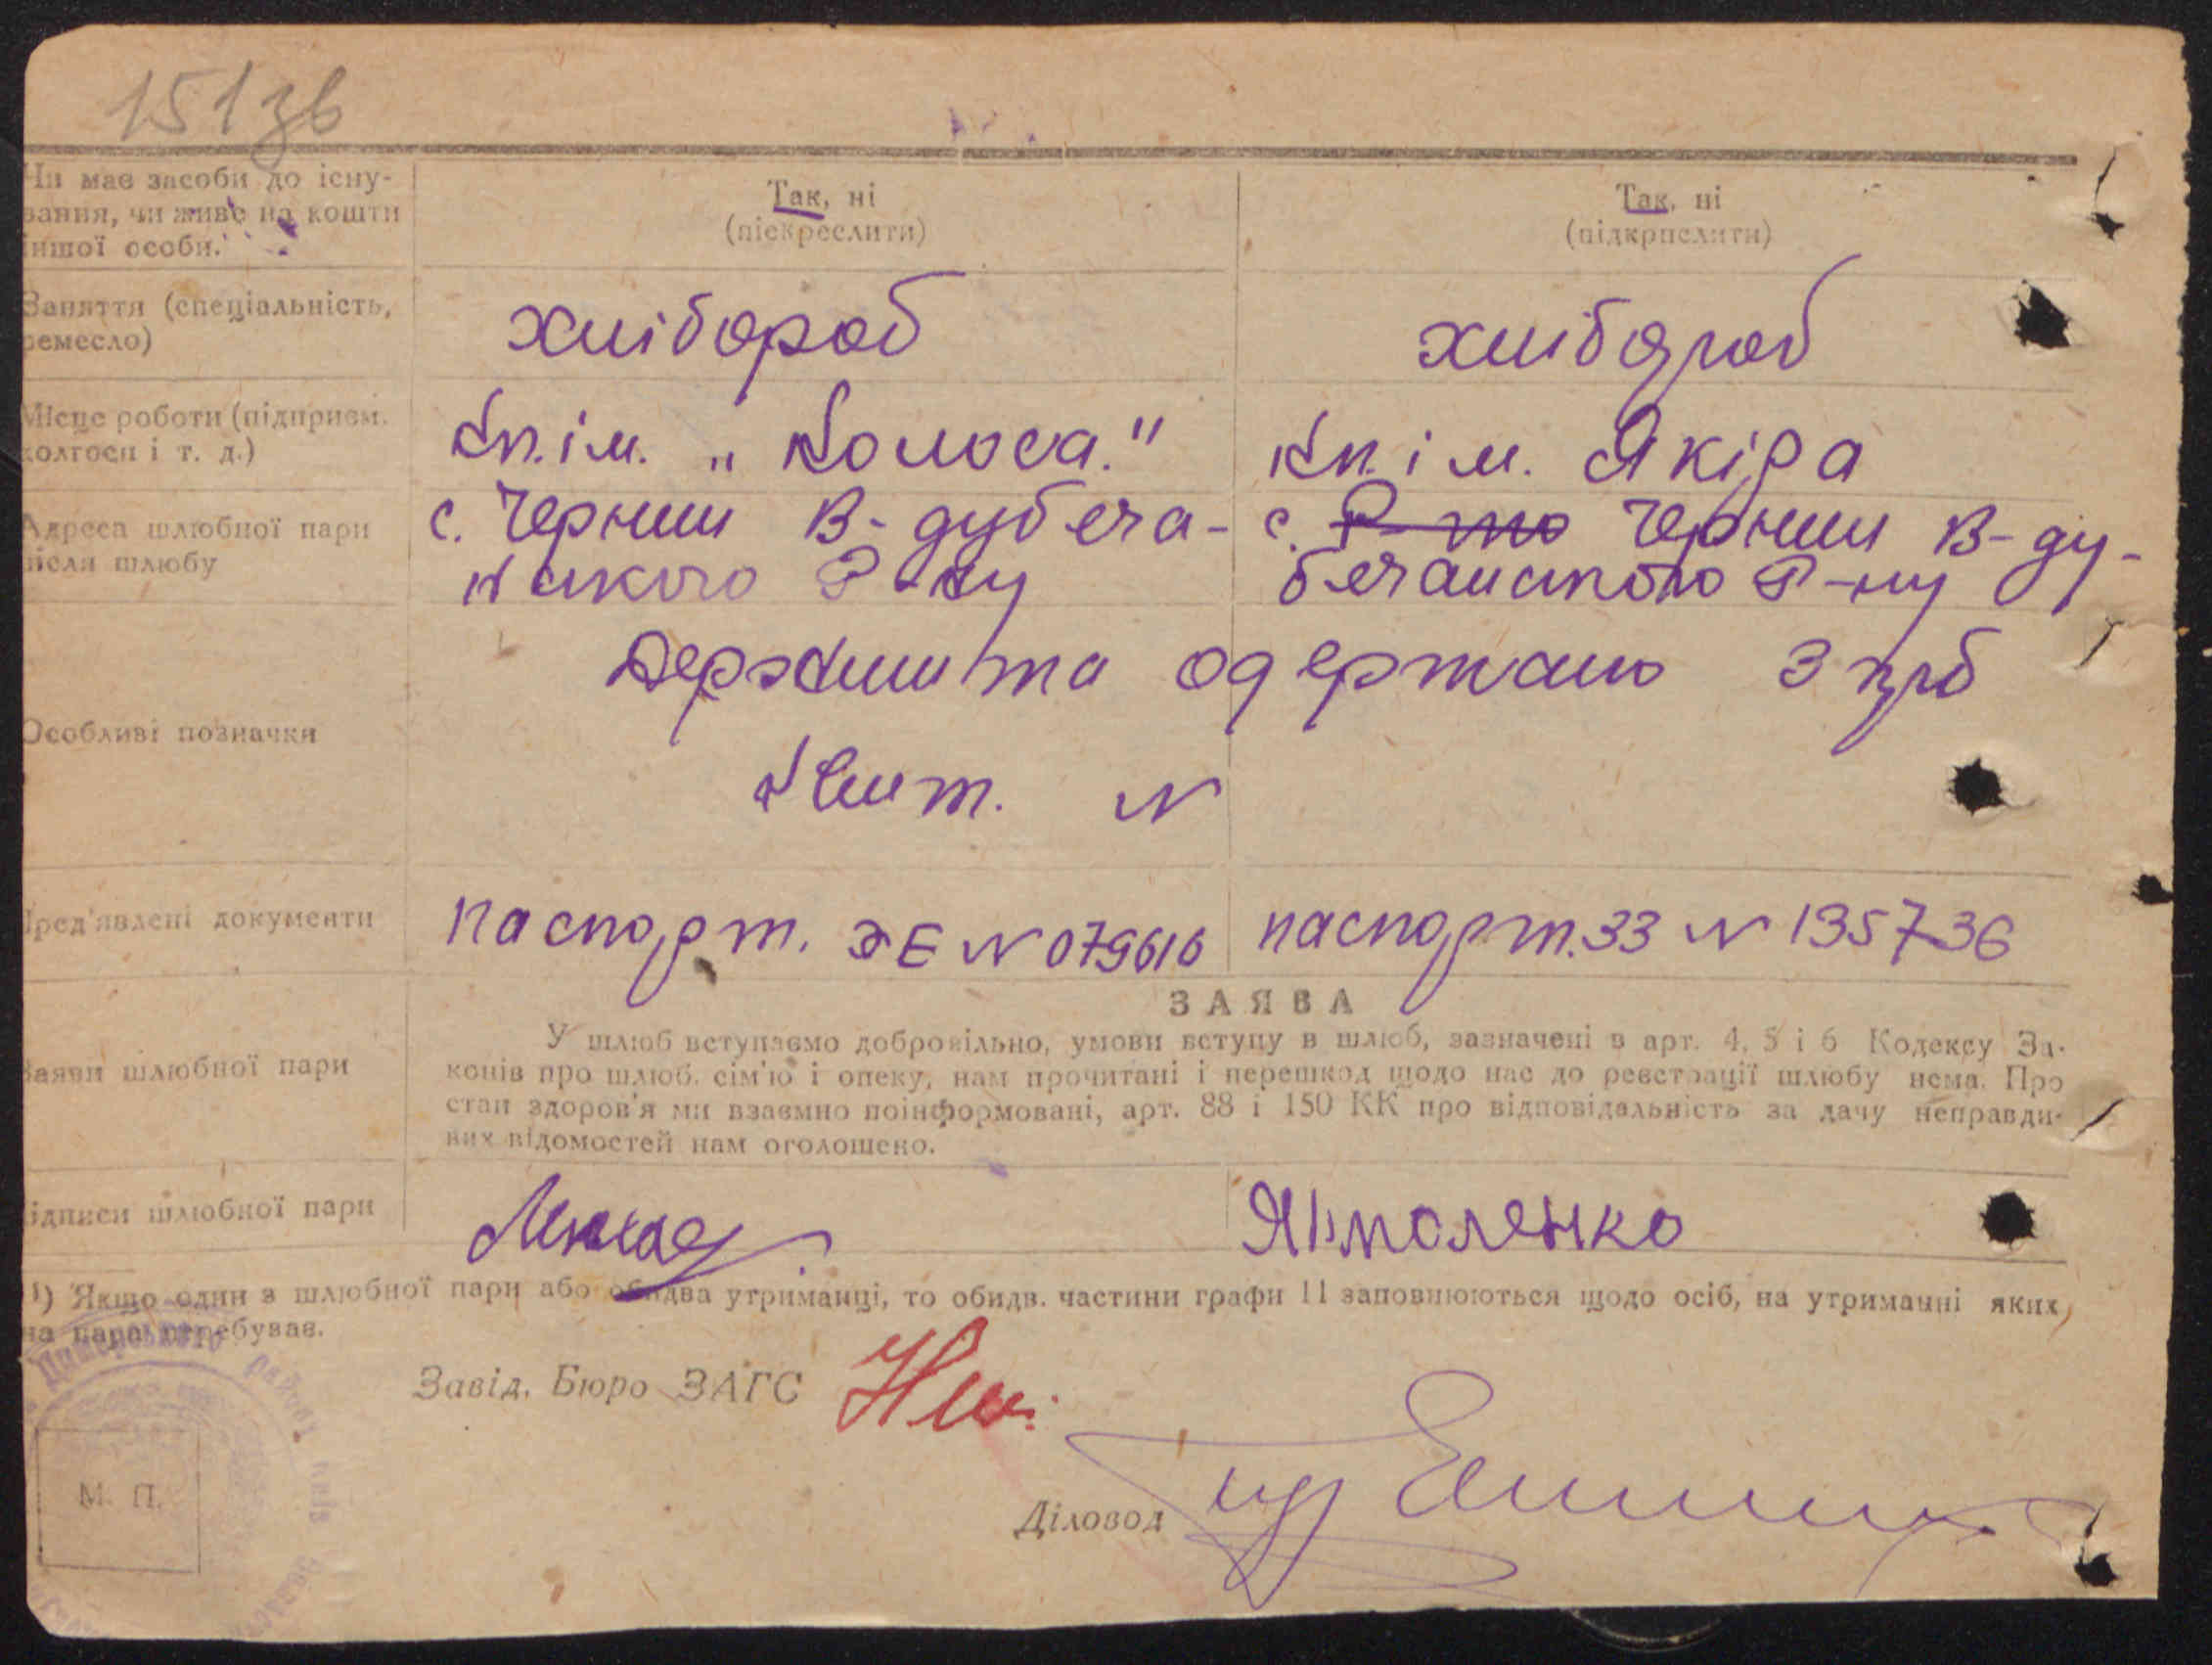 151зв
Чи має засоби до існу-
вання, чи живе на кошти
іншої особи.
Так, ні
(піекреслити)
Так, ні
(підкрпслити)
Заняття (спеціальність,
ремесло)
хлібороб
хлібороб
Місце роботи (підприєм.
колгосп і т. д.)
Кп. ім. „Колоса."
Кп. ім. Якіра
Адреса шлюбної пари
після шлюбу
с. Чернин В-дубеча-
нського Р-ну
с. Чернин В-ду-
бечанського Р-ну
Особливі позначки
Держмита одержано 3 крб
Квит. N
Пред'явлені документи
паспорт. ЭЕ N 079616
паспорт. ЗЗ N 135736
Заяви шлюбної пари
ЗАЯВА
У шлюб вступаємо добровільно, умови вступу в шлюб, зазначені в арт. 4, 5 і 6 Кодексу За-
конів про шлюб, сім'ю і опеку, нам прочитані і перешкод щодо нас до реєстрації шлюбу нема. Про
стан здоров'я ми взаємно поінформовані, арт. 88 і 150 КК про відповідальність за дачу неправди-
вих відомостей нам оголошено.
Підписи шлюбної пари
Ярмоленко
¹) Якщо один з шлюбної пари або обидва утриманці, то обидв. частини графи 11 заповнюються щодо осіб, на утриманні яких
на пара перебуває.
Завід. Бюро ЗАГС
Діловод
М. П.